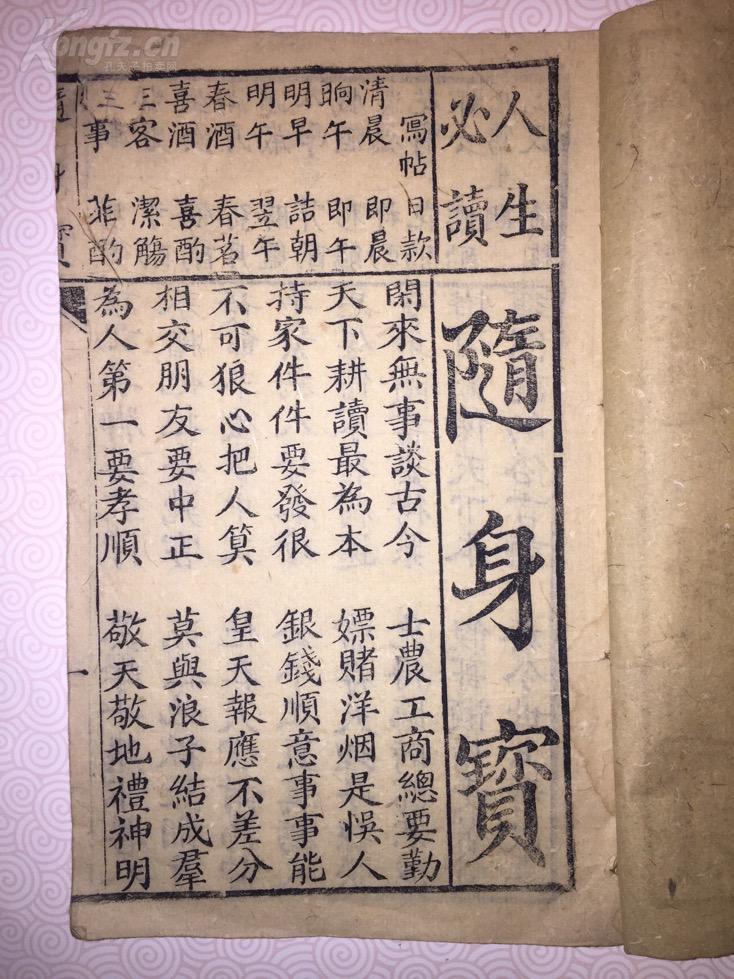 人生
必讀
隨身寶
寫帖日款
清晨 即晨
晌午 即午
明早 詰朝
明午 翌午
春酒 春茗
喜酒 喜酌
三客 潔觴
三事 菲酌
閑來無事談古今 士農工商總要勤
天下耕讀最為本 嫖賭洋烟是悞人
持家件件要發很 銀錢順意事事能
不可狼心把人筭 皇天報應不差分
相交朋友要中正 莫與浪子結成羣
為人第一要孝順 敬天敬地禮神明
隨身寶
一
Kongfz.cn
孔夫子拍卖网